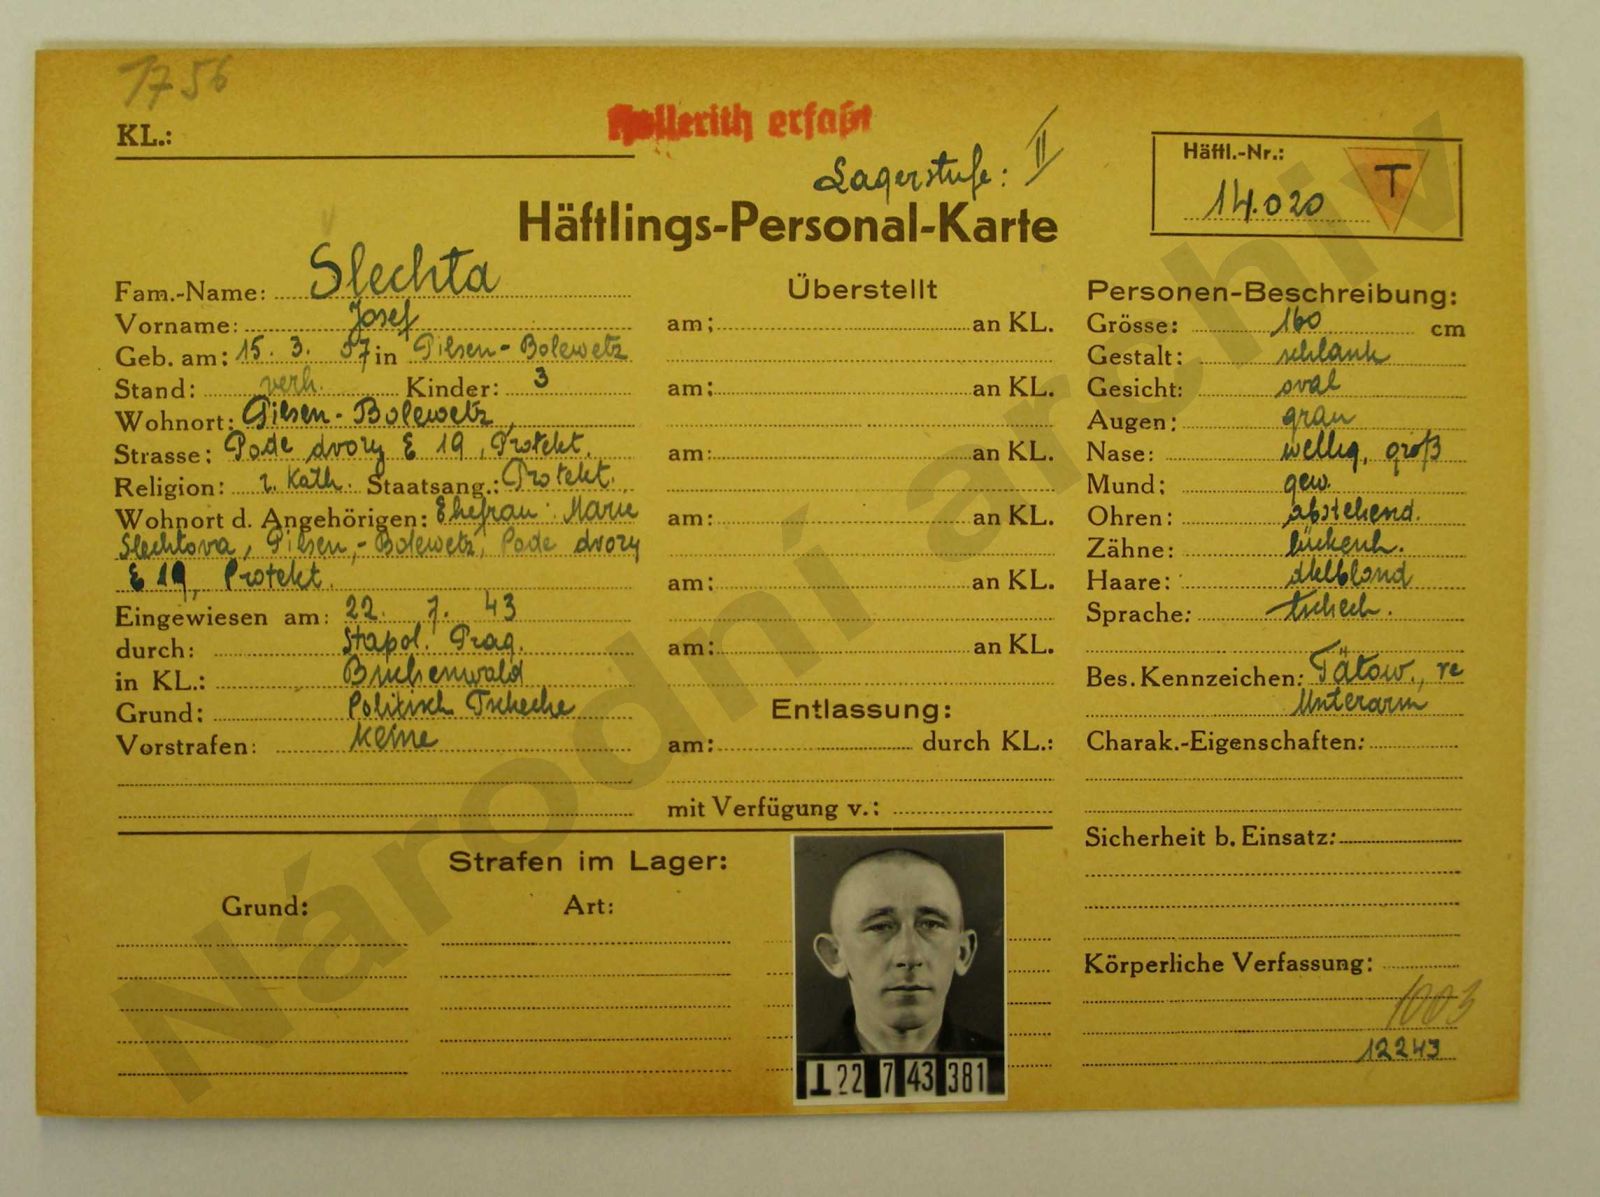 1756
KL.:
Hollerith erfaßt
Lagerstufe: II
Häftl.-Nr.:
14.020
T
Häftlings-Personal-Karte
Fam.-Name: Slechta
Vorname: Josef
Geb. am: 15. 3. 07 in Pilsen-Bolewetz
Stand: verh. Kinder: 3
Wohnort: Pilsen-Bolewetz,
Strasse: Pode dvory E 19, Protekt.
Religion: r. Kath. Staatsang.: Protekt.
Wohnort d. Angehörigen: Ehefrau: Marie
Slechtova, Pilsen,-Bolewetz, Pode dvory
E 19, Protekt.
Eingewiesen am: 22. 7. 43
durch: Stapol. Prag.
in KL.: Buchenwald
Grund: Politisch Tscheche
Vorstrafen: keine
Überstellt
am: an KL.
am: an KL.
am: an KL.
am: an KL.
am: an KL.
am: an KL.
Entlassung:
am: durch KL.:
mit Verfügung v.:
Personen-Beschreibung:
Grösse: 160 cm
Gestalt: schlank
Gesicht: oval
Augen: grau
Nase: wellig, groß
Mund: gew.
Ohren: abstehend.
Zähne: lückenh.
Haare: dklblond
Sprache: tschech.
Bes. Kennzeichen: Tätow., re
Unterarm
Charak.-Eigenschaften:
Sicherheit b. Einsatz:
Körperliche Verfassung:
1003
12243
Strafen im Lager:
Grund: Art:
T 22 7 43 381
Národní archiv